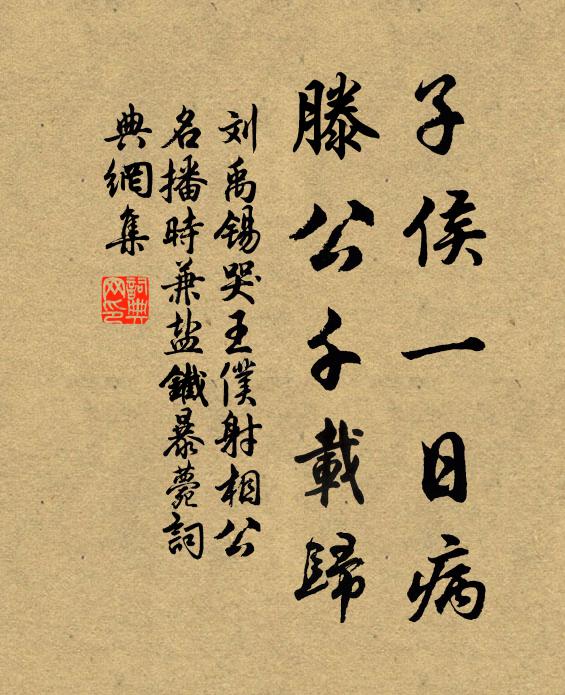 子侯一日病
滕公千載歸
刘禹锡哭王僕射相公
名播時兼盐鐵暴薨詞
典網集
詞典網印